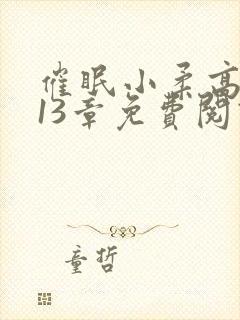 催眠小柔高
13章免費閱
童哲